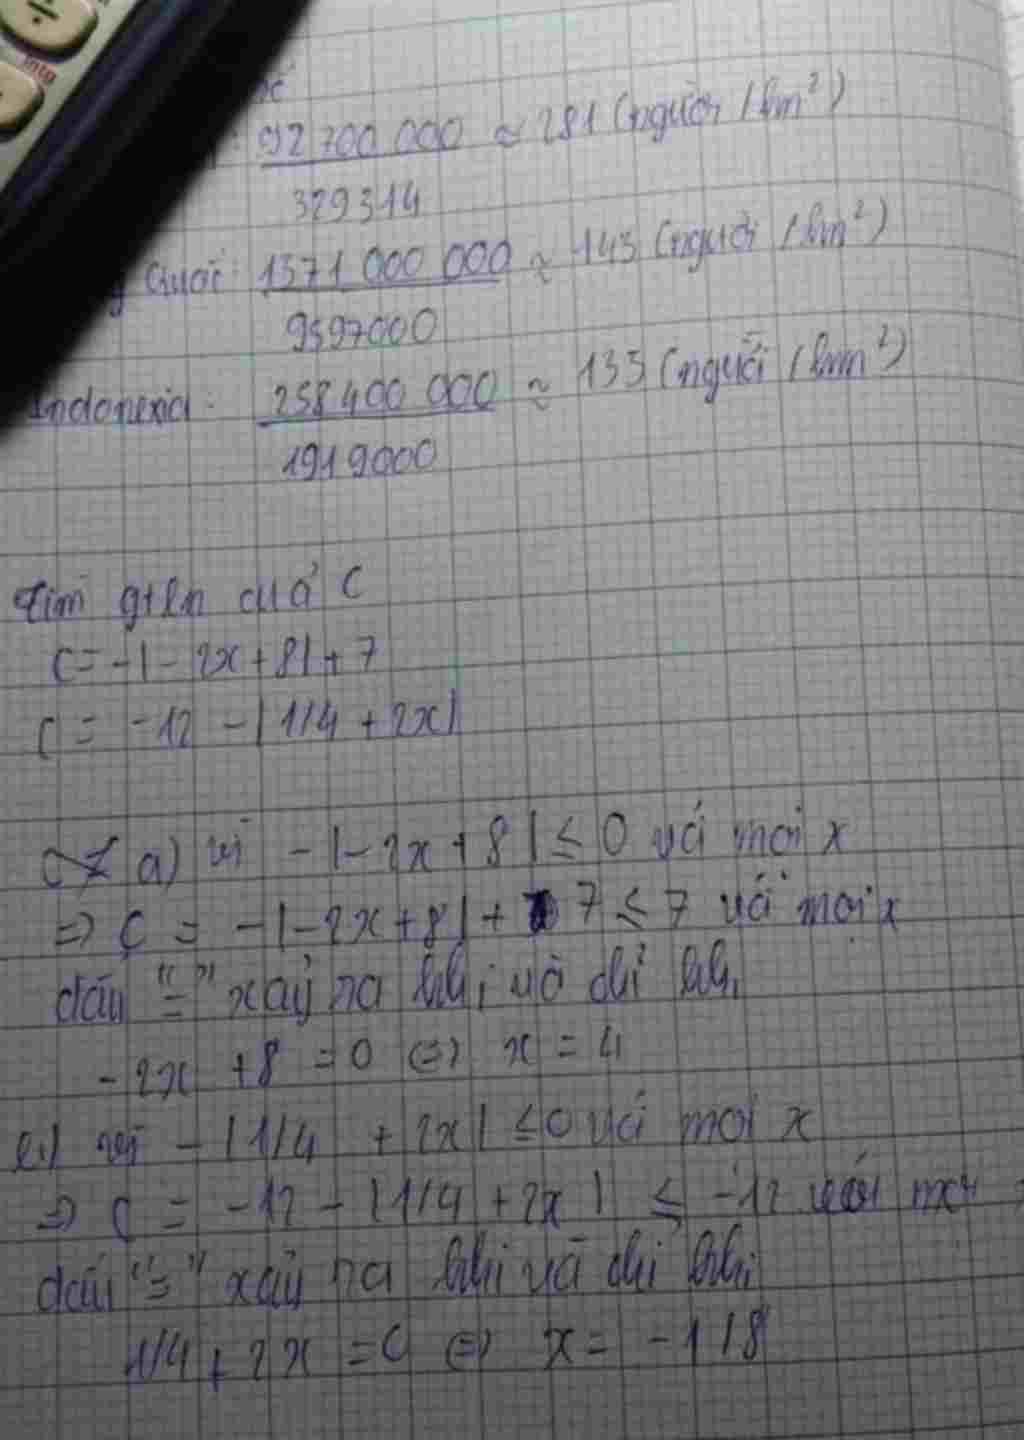 ÷
Into
92 700 000 ≈ 281 (người / km²)
329314
Quốc: 1371 000 000 ≈ 143 (người / km²)
9597000
Indonexia: 258 400 000 ≈ 135 (người / km²)
1919000
tìm gtln của C
C = -|-2x+8|+7
C = -12 - |1/4 + 2x|
a) vì -|-2x+8| ≤ 0 với mọi x
=> C = -|-2x+8| + 7 ≤ 7 với mọi x
dấu "=" xảy ra khi và chỉ khi
-2x +8 = 0 <=> x = 4
vì -|1/4 + 2x| ≤ 0 với mọi x
=> C = -12 - |1/4 + 2x| ≤ -12 với mọi
dấu "=" xảy ra khi và chỉ khi
1/4 + 2x = 0 <=> x = -1/8